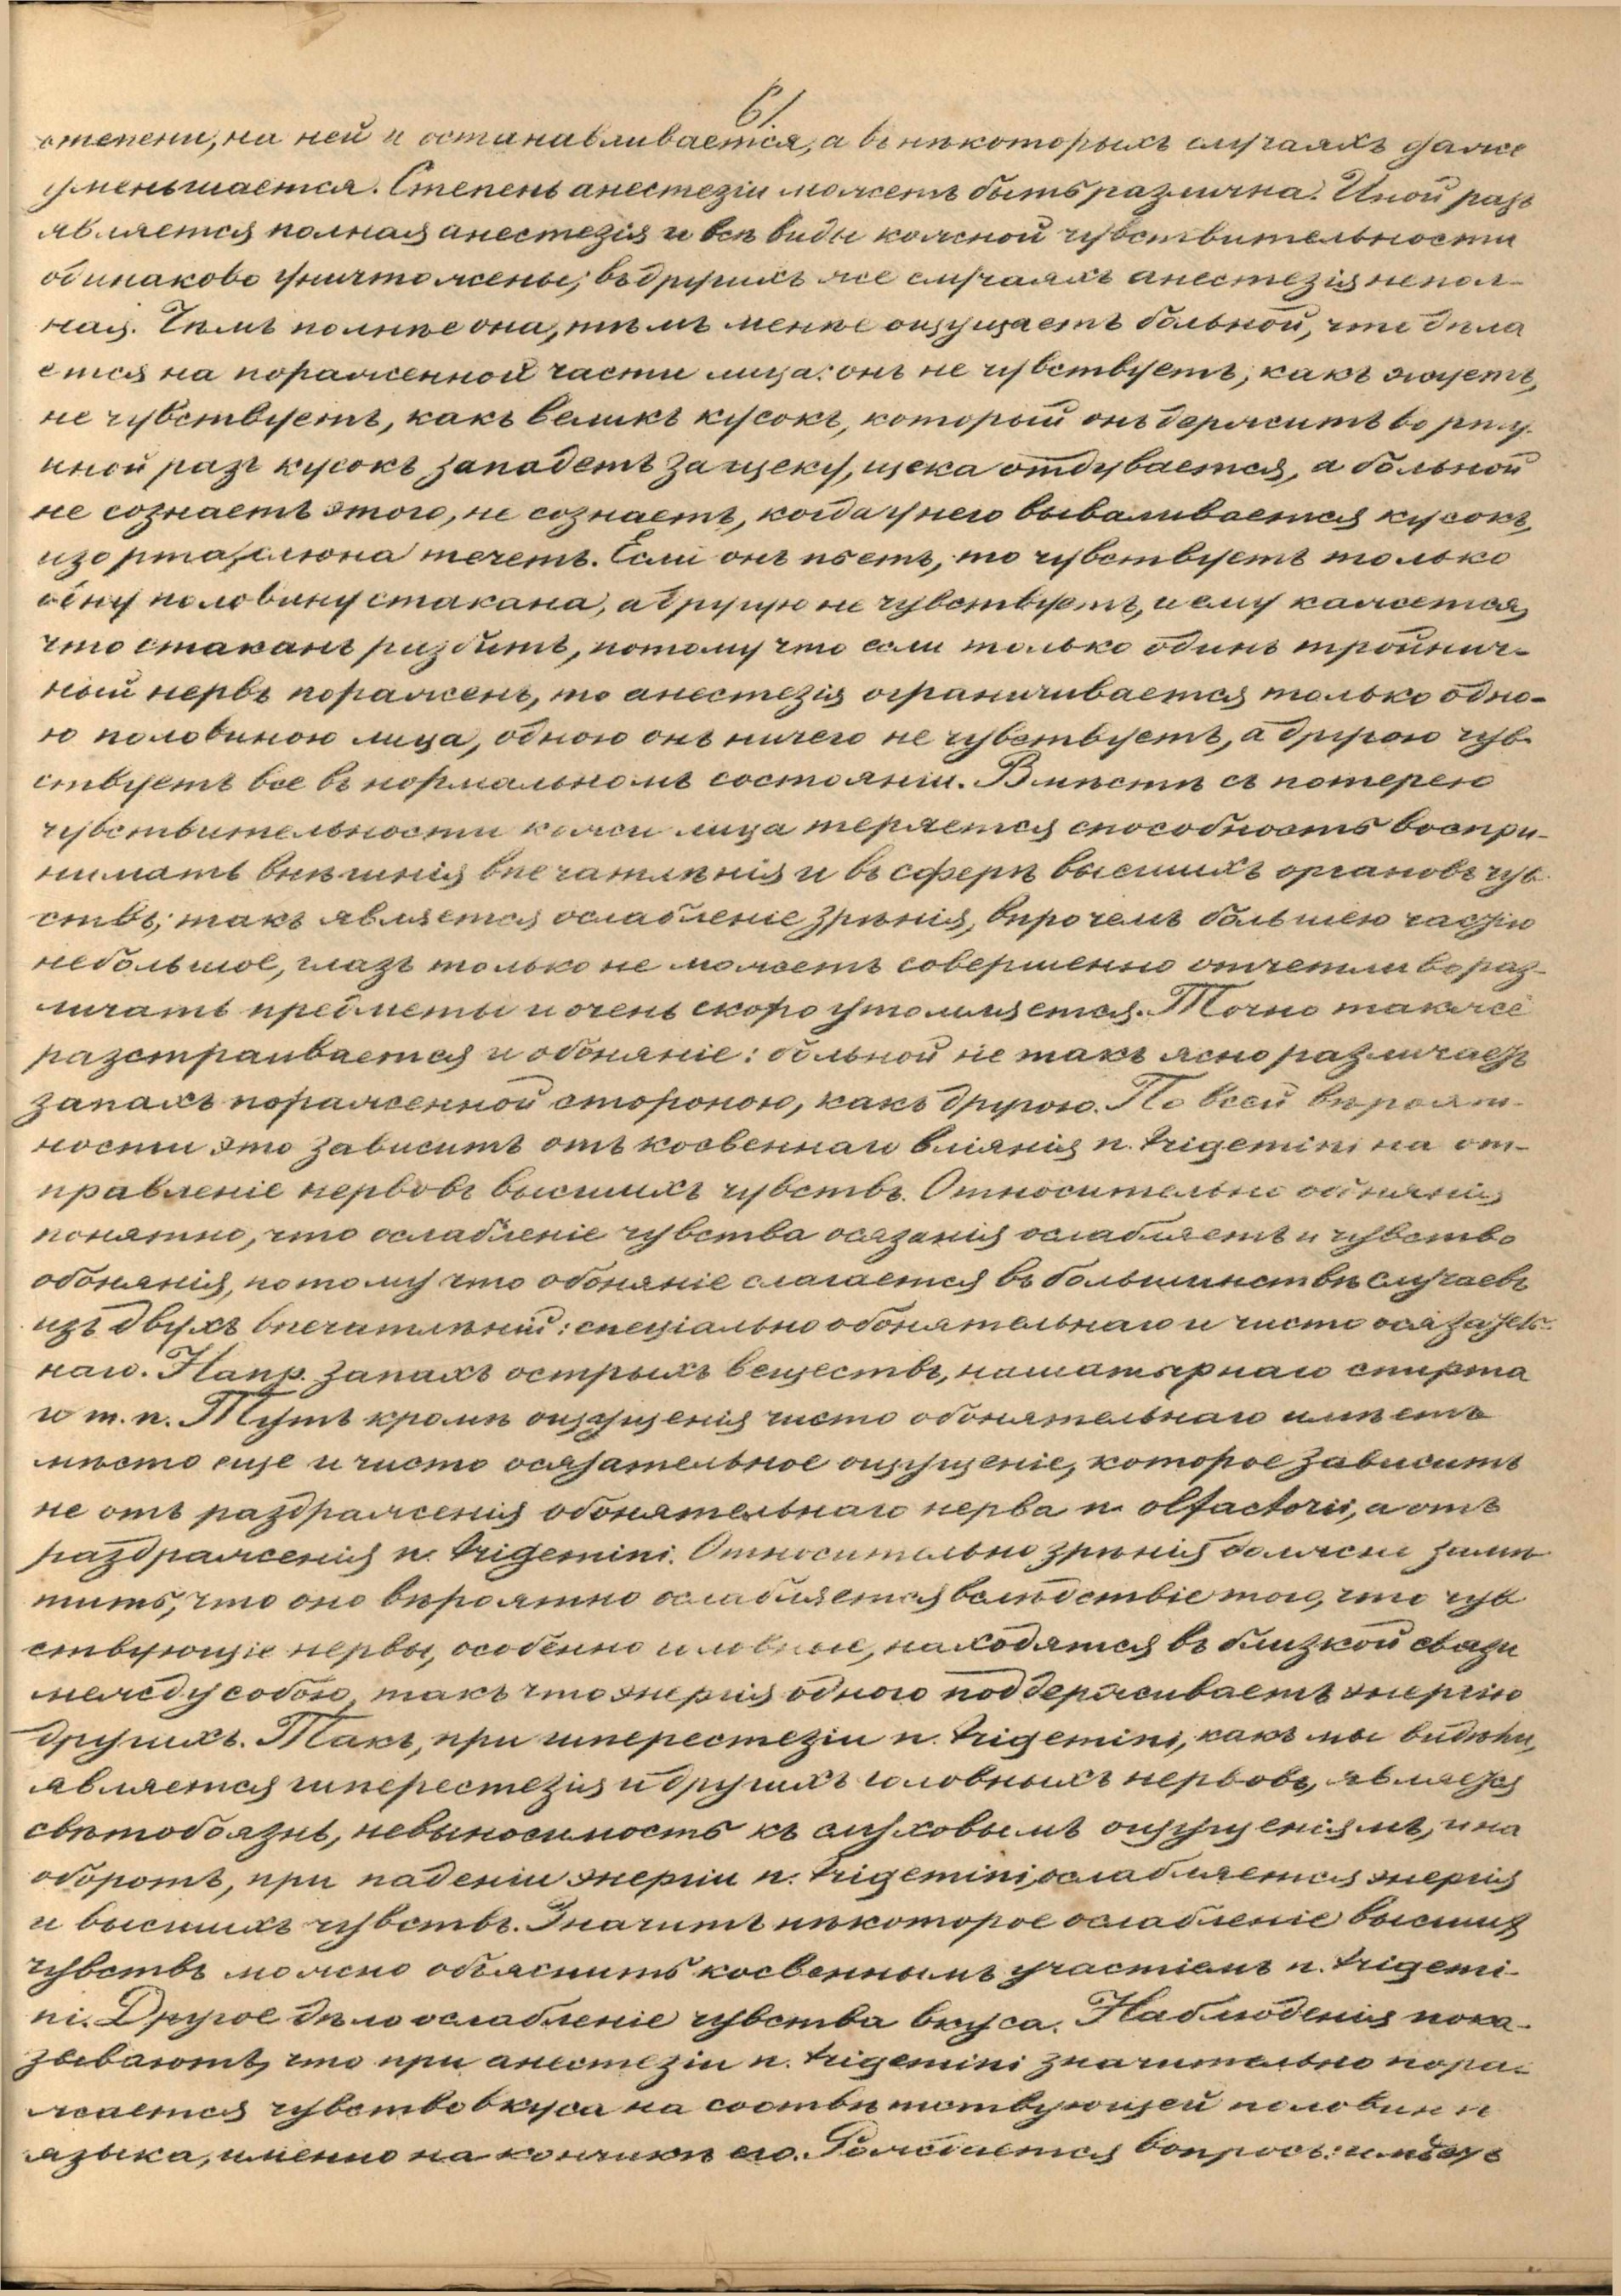 61.
степени, на ней и останавливается, а въ нѣкоторыхъ случаяхъ даже
уменьшается. Степень анестезіи можетъ быть различна. Иной разъ
является полная анестезія и всѣ виды кожной чувствительности
одинаково уничтожены; въ другихъ же случаяхъ анестезія непол-
ная. Чѣмъ полнѣе она, тѣмъ менѣе ощущаетъ больной, что дѣла
ется на пораженной части лица: онъ не чувствуетъ, какъ жуетъ,
не чувствуетъ, какъ великъ кусокъ, который онъ держитъ во рту.
иной разъ кусокъ западетъ за щеку, щека отдувается, а больной
не сознаетъ этого, не сознаетъ, когда у него вываливается кусокъ
изо рта, слюна течетъ. Если онъ пьетъ, то чувствуетъ только
одну половину стакана, а другую не чувствуетъ, и ему кажется,
что стаканъ разбитъ, потому что если только одинъ тройнич-
ный нервъ пораженъ, то анестезія ограничивается только одно-
ю половиною лица, одною онъ ничего не чувствуетъ, а другою чув-
ствуетъ все въ нормальномъ состояніи. Вмѣстѣ съ потерею
чувствительности кожи лица теряется способность воспри-
нимать внѣшнія впечатлѣнія и въ сферѣ высшихъ органовъ чув-
ствъ; такъ является ослабленіе зрѣнія, впрочемъ большею частію
небольшое, глазъ только не можетъ совершенно отчетливо раз-
личать предметы и очень скоро утомляется. Точно также
разстраивается и обоняніе: больной не такъ ясно различаетъ
запахъ пораженной стороною, какъ другою. По всей вѣроят-
ности это зависитъ отъ косвеннаго вліянія n. trigemini на от-
правленіе нервовъ высшихъ чувствъ. Относительно обонянія
понятно, что ослабленіе чувства осязанія ослабляетъ и чувство
обонянія, потому что обоняніе слагается въ большинствѣ случаевъ
изъ двухъ впечатлѣній: спеціально обонятельнаго и чисто осязатель-
наго. Напр. запахъ острыхъ веществъ, нашатырнаго спирта
и т. п. Тутъ кромѣ ощущенія чисто обонятельнаго имѣетъ
мѣсто еще и чисто осязательное ощущеніе, которое зависитъ
не отъ раздраженія обонятельнаго нерва n. olfactorii, а отъ
раздраженія n. trigemini. Относительно зрѣнія должен замѣ
тить, что оно вѣроятно ослабляется вслѣдствіе того, что чув
ствующіе нервы, особенно головные, находятся въ близкой связи
между собою, такъ что энергія одного поддерживаетъ энергію
другихъ. Такъ, при гиперестезіи n. trigemini, какъ мы видѣли,
является гиперестезія и другихъ головныхъ нервовъ, является
свѣтобоязнь, невыносимость къ слуховымъ ощущеніямъ, и на
оборотъ, при паденіи энергіи n. trigemini, ослабляется энергія
и высшихъ чувствъ. Значитъ нѣкоторое ослабленіе высших
чувствъ можно объяснить косвеннымъ участіемъ n. trigemi-
ni. Другое дѣло ослабленіе чувства вкуса. Наблюденія пока-
зываютъ, что при анестезіи n. trigemini значительно пора-
жается чувство вкуса на соотвѣтствующей половинѣ
языка, именно на кончикѣ его. Рождается вопросъ: